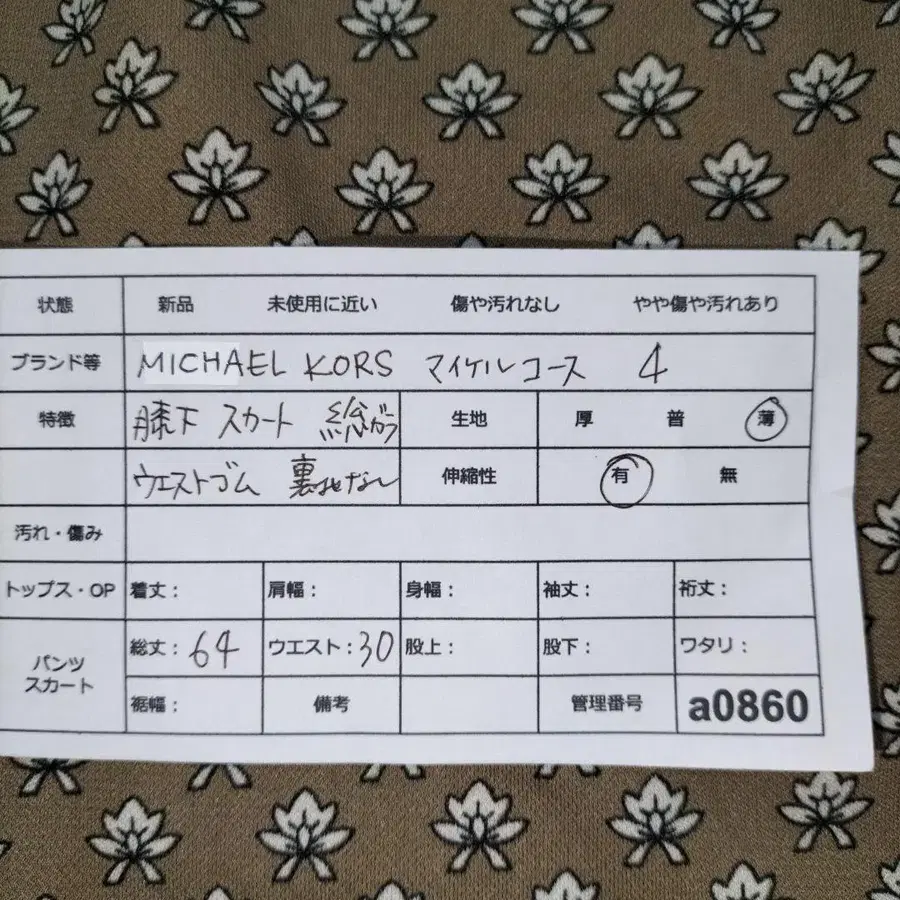 状態 新品 未使用に近い 傷や汚れなし やや傷や汚れあり
ブランド等 MICHAEL KORS マイケルコース 4
特徴 膝下 スカート 総ガラ 生地 厚 普 薄
ウエストゴム 裏地なし 伸縮性 有 無
汚れ・傷み
トップス・OP 着丈: 肩幅: 身幅: 袖丈: 裄丈:
パンツ スカート 総丈:64 ウエスト:30 股上: 股下: ワタリ:
裾幅: 備考 管理番号 a0860